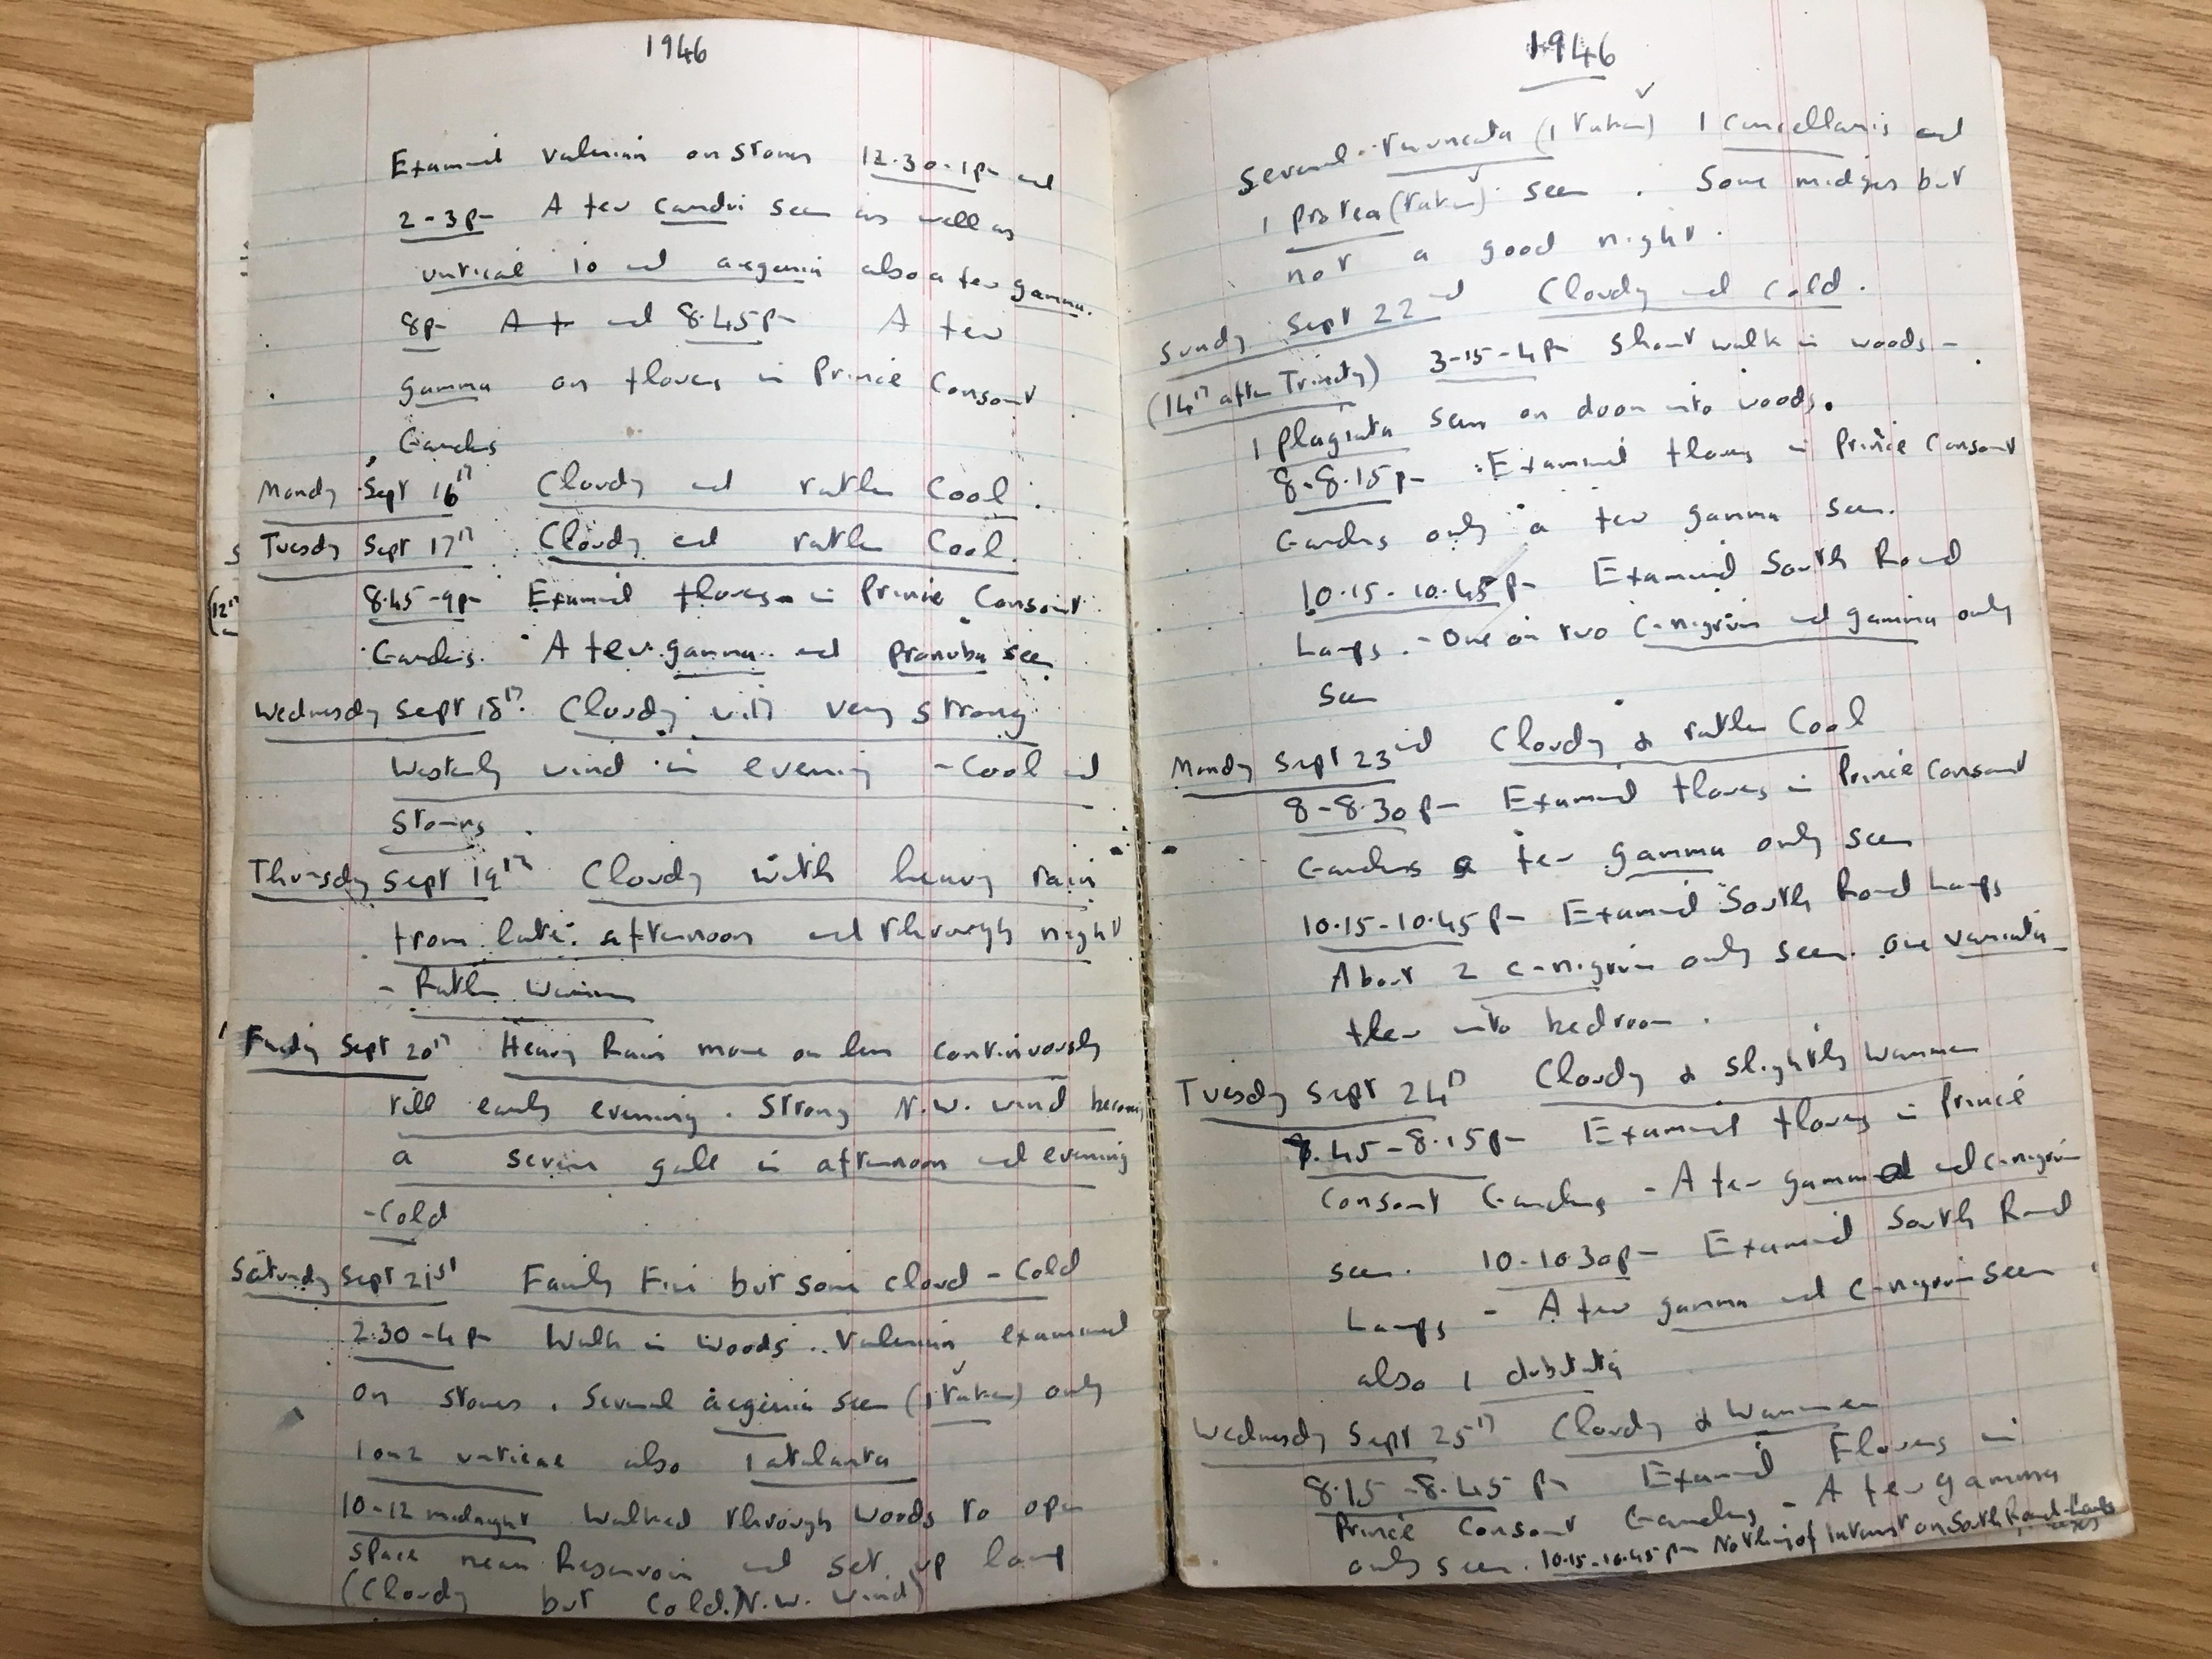 1946
Examined valerian on stones 12.30-1pm and
2-3pm A few cardui seen as well as
urticae io and aegeria also a few gamma.
8pm A few and 8.45pm A few
gamma on flowers in Prince Consort
Gardens
Monday Sept 16th Cloudy and rather cool.
Tuesday Sept 17th Cloudy and rather cool.
8.45-9pm Examined flowers in Prince Consort
Gardens. A few gamma and pronuba seen
Wednesday Sept 18th Cloudy with very strong
Westerly wind in evening - Cool and
stormy
Thursday Sept 19th Cloudy with heavy rain
from late afternoon and through night
- Rather warmer
Friday Sept 20th Heavy Rain more or less continuously
till early evening. Strong N.W. wind becoming
a severe gale in afternoon and evening
- Cold
Saturday Sept 21st Fairly Fine but some cloud - Cold
2.30-4pm Walk in woods. Valerian examined
on stones. Several aegeria seen (1 taken) only
1 or 2 urticae also 1 atalanta
10-12 midnight Walked through woods to open
space near Reservoir and set up lamp
(Cloudy but cold N.W. wind)
1946
Several truncata (1 taken) 1 cancellaria and
1 postea (taken) seen. Some midges but
not a good night.
Sunday Sept 22nd Cloudy and cold.
(14th after Trinity) 3-15-4pm Short walk in woods -
1 plagiata seen on door into woods.
8-8.15pm Examined flowers in Prince Consort
Gardens only a few gamma seen.
10.15-10.45pm Examined South Road
Lamps. - One or two C-nigrum and gamma only
seen
Monday Sept 23rd Cloudy & rather Cool
8-8.30pm Examined flowers in Prince Consort
Gardens a few gamma only seen
10.15-10.45pm Examined South Road Lamps
About 2 c-nigrum only seen. One
flew into bedroom.
Tuesday Sept 24th Cloudy & slightly warmer
8.45-8.15pm Examined flowers in Prince
Consort Gardens - A few gamma and c-nigrum
seen. 10-10.30pm Examined South Road
Lamps - A few gamma and c-nigrum seen
also 1
Wednesday Sept 25th Cloudy & Warmer
8.15-8.45pm Examined Flowers in
Prince Consort Gardens - A few gamma
only seen. 10.15-10.45pm Nothing of interest on South Road Lamps